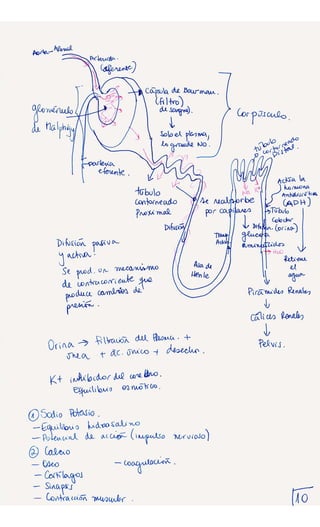 Aorta - Renal
Arteriola
(aferente)
Cápsula de Bowman.
(filtro)
de sangre)
Corpúsculo.
glomérulo
de Malpighi
Solo el plasma,
lo grande NO.
arteria
eferente.
túbulo
contorneado
Distal.
túbulo
contorneado
Proximal
Se reabsorbe
por capilares
Actúa la
hormona
Antidiurética
(ADH)
Túbulo
Colector
(orina)
Difusión
glucosa
Aminoácidos
Retiene
el
agua
Asa de
Henle
Difusión pasiva
y activa.
Se prod. un mecanismo
de contracorriente que
produce cambios de
presión.
Pirámides Renales
Cálices Renales
Pelvis.
Orina → Filtración del Plasma. +
úrea + ác. úrico + desecho.
K+ inhibidor del
Equilibrio osmótico.
① Sodio Potasio.
- Equilibrio hidrosalino
- Potencial de acción (impulso nervioso)
② Calcio
- Óseo
- coagulación.
- Cartílagos
- Sinapsis
- Contracción muscular.
10